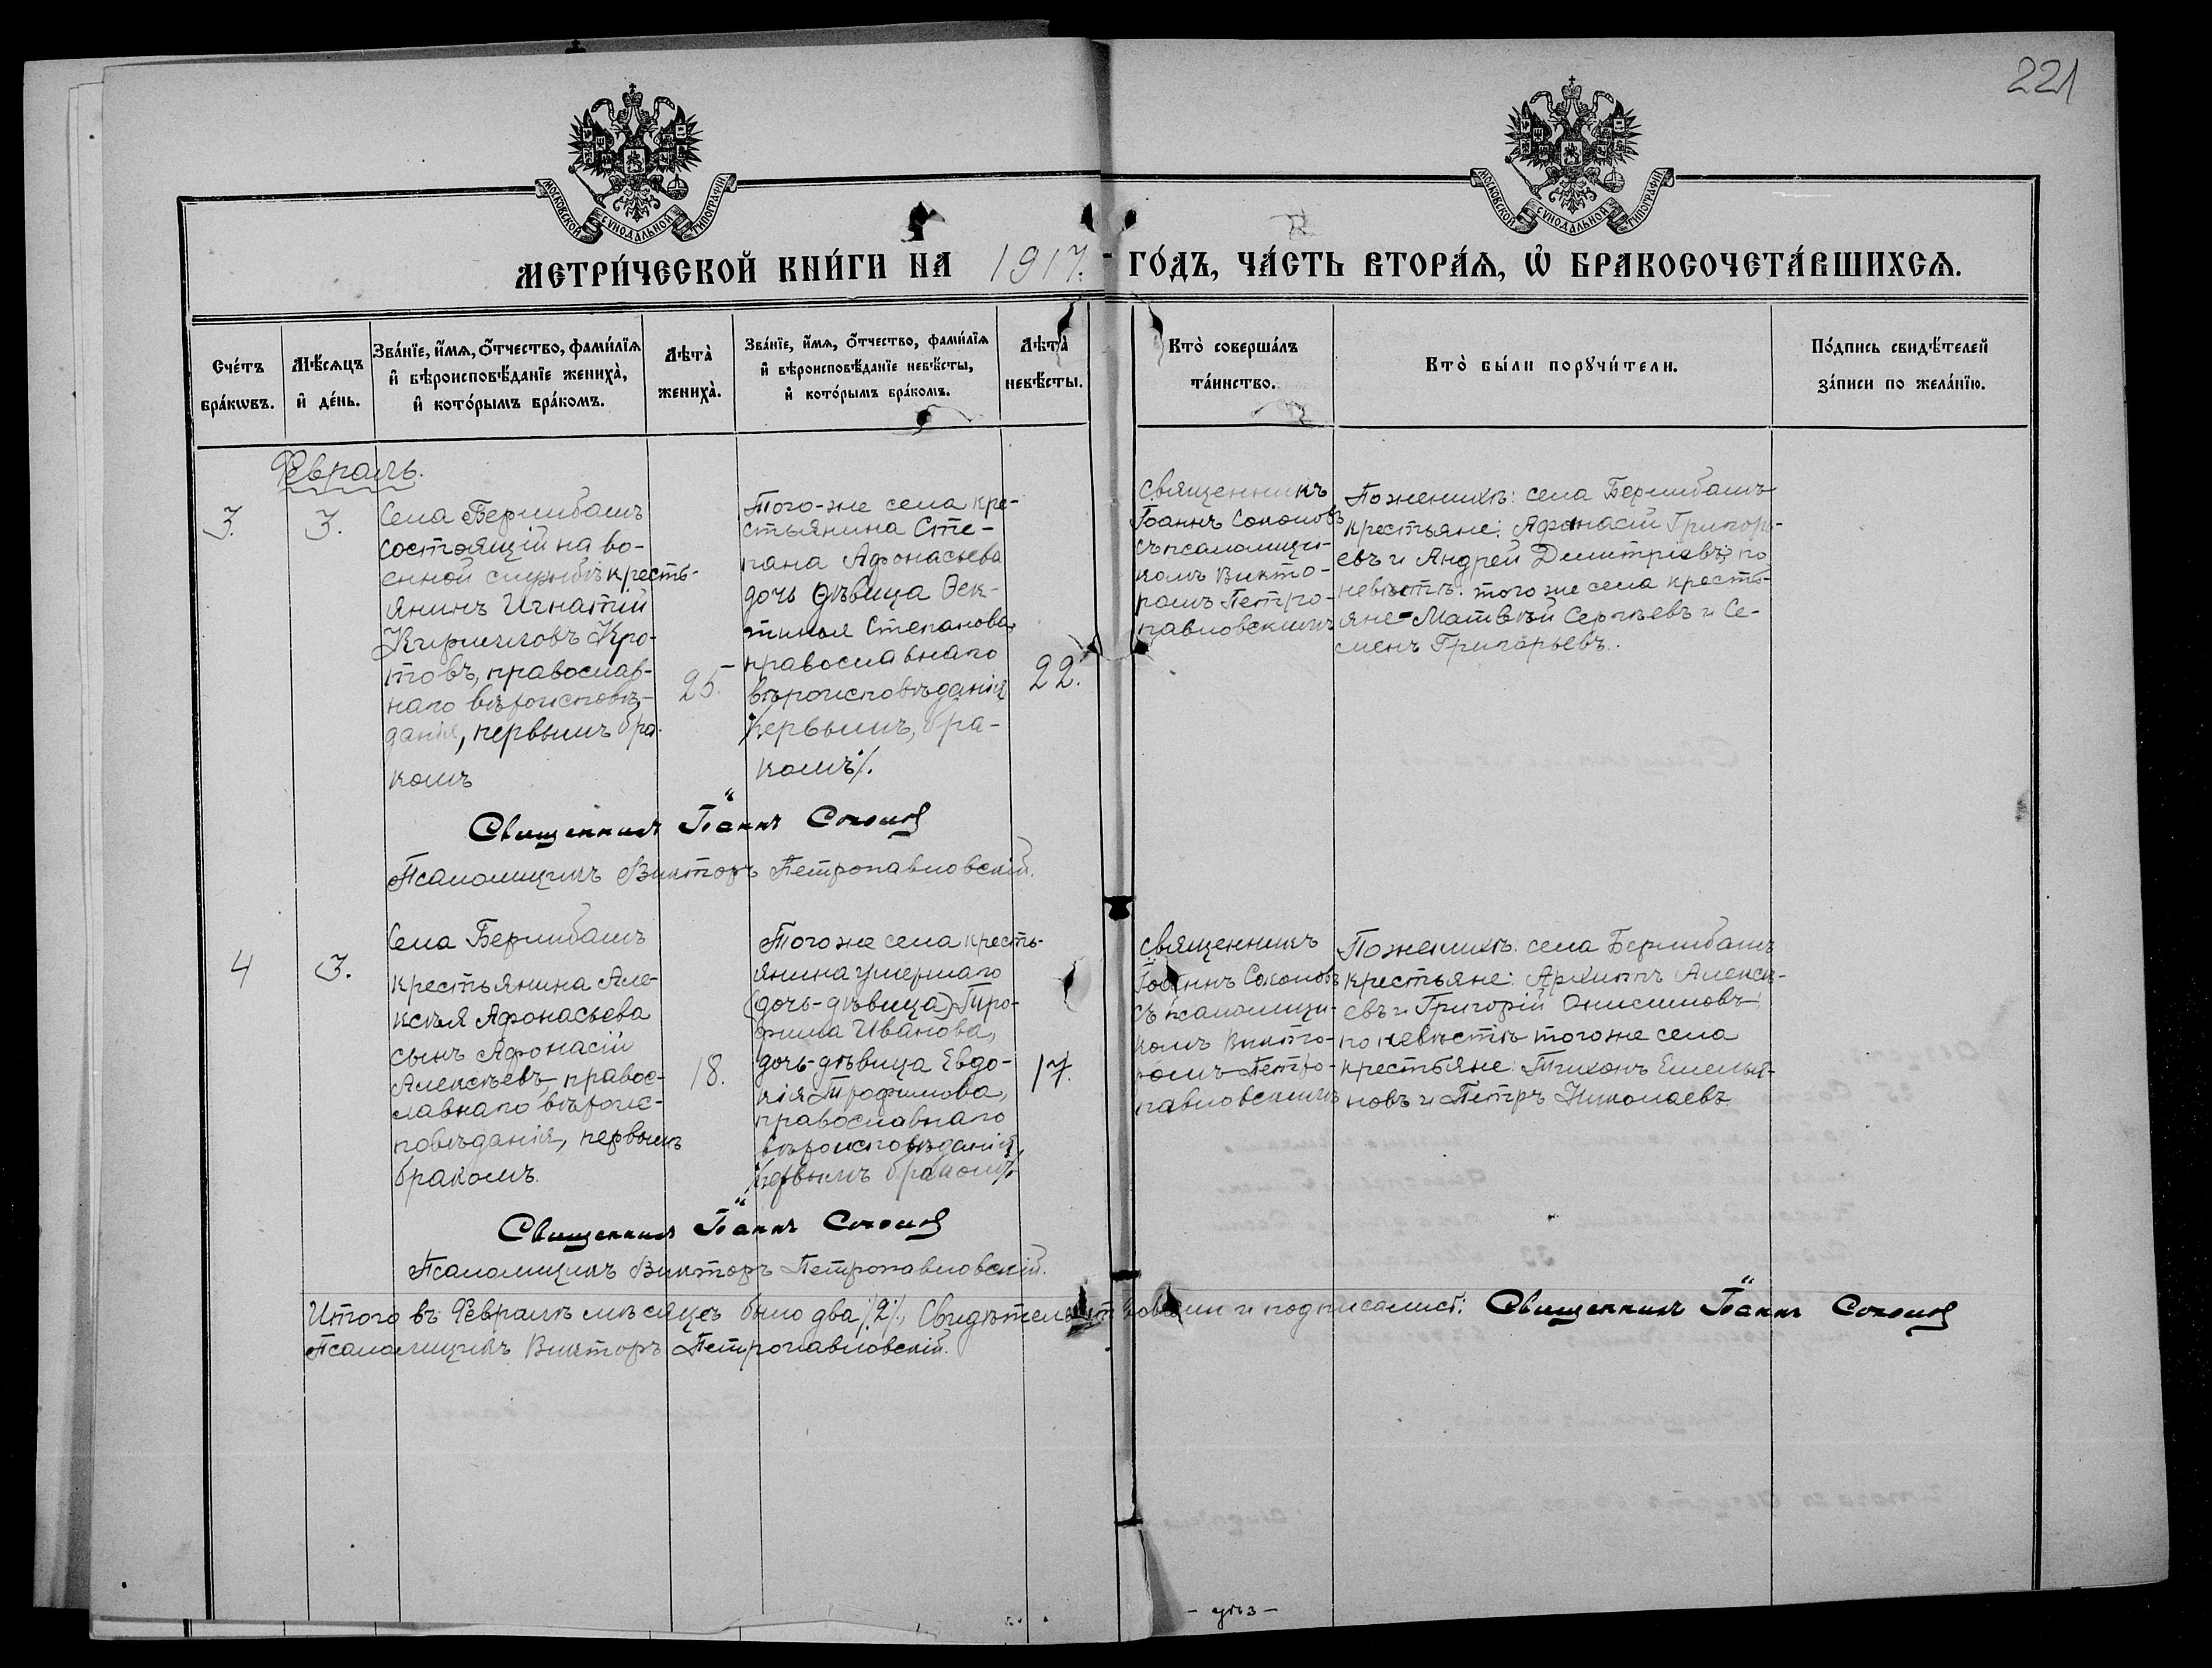 221
МОСКОВСКОЙ СѴНОДАЛЬНОЙ ТИПОГРАФІИ
МОСКОВСКОЙ СѴНОДАЛЬНОЙ ТИПОГРАФІИ
МЕТРИ́ЧЕСКОЙ КНИ́ГИ НА 1917. ГО́ДЪ, ЧА́СТЬ ВТОРА́Ѧ, Ѡ҆ БРАКОСОЧЕТА́ВШИХСѦ.
Сче́тъ
бра́кѡвъ.
Мѣ́сѧцъ
и҆ де́нь.
Зва́нїе, и҆́мѧ, ѻ҆́тчество, фами́лїѧ
и҆ вѣроисповѣ́данїе жениха̀,
и҆ кото́рымъ бра́комъ.
Лѣта̀
жениха̀.
Зва́нїе, и҆́мѧ, ѻ҆́тчество, фами́лїѧ
и҆ вѣроисповѣ́данїе невѣ́сты,
и҆ кото́рымъ бра́комъ.
Лѣта̀
невѣ́сты.
Кто̀ соверша́лъ
та́инство.
Кто̀ бы́ли порꙋчи́тели.
По́дпись свидѣ́телей
за́писи по жела́нїю.
Февраль.
3.
3.
Села Берлибашъ
состоящій на во-
енной службѣ кресть-
янинъ Игнатій
Кирилловъ Кро-
товъ, православ-
наго вѣроисповѣ-
данія, первымъ бра-
комъ
25.
Того-же села кре-
стьянина Сте-
пана Афонасьева
дочь дѣвица Фек-
тиния Степанова,
православнаго
вѣроисповѣданія
первымъ, бра-
комъ/.
22.
Священникъ
Іоаннъ Соколовъ
съ псаломщи-
комъ Викто-
ромъ Петро-
павловскимъ
По женихѣ: села Берлибашъ
крестьяне: Афонасій Григорь-
евъ и Андрей Димитріевъ; по
невѣстѣ: того же села кресть-
яне-Матвѣй Сергѣевъ и Се-
менъ Григорьевъ.
Священникъ Іоаннъ Соколов
Псаломщикъ Викторъ Петропавловскій.
4
3.
Села Берлибашъ
крестьянина Але-
ксѣя Афонасьева
сынъ Афонасій
Алексѣевъ, правос-
лавнаго вѣроис-
повѣданія, первымъ
бракомъ.
18.
Того же села кресть-
янина умершаго
(дочь-дѣвица) Тро-
фима Иванова,
дочь-дѣвица Евдо-
кія Трофимова,
православнаго
вѣроисповѣданія,
первымъ бракомъ/.
17.
Священникъ
Іоаннъ Соколовъ
съ псаломщи-
комъ Викто-
ромъ Петро-
павловскимъ
По женихѣ: села Берлибашъ
крестьяне: Архиппъ Алексѣ-
евъ и Григорій Онисимовъ;
по невѣстѣ того же села
крестьяне: Тихонъ Емелья-
новъ и Петръ Николаевъ.
Священникъ Іоаннъ Соколов
Псаломщикъ Викторъ Петропавловскій.
Итого въ Февралѣ мѣсяцѣ было два /2/, Свидѣтельствовали и подписались: Священникъ Іоаннъ Соколов
Псаломщикъ Викторъ Петропавловскій.